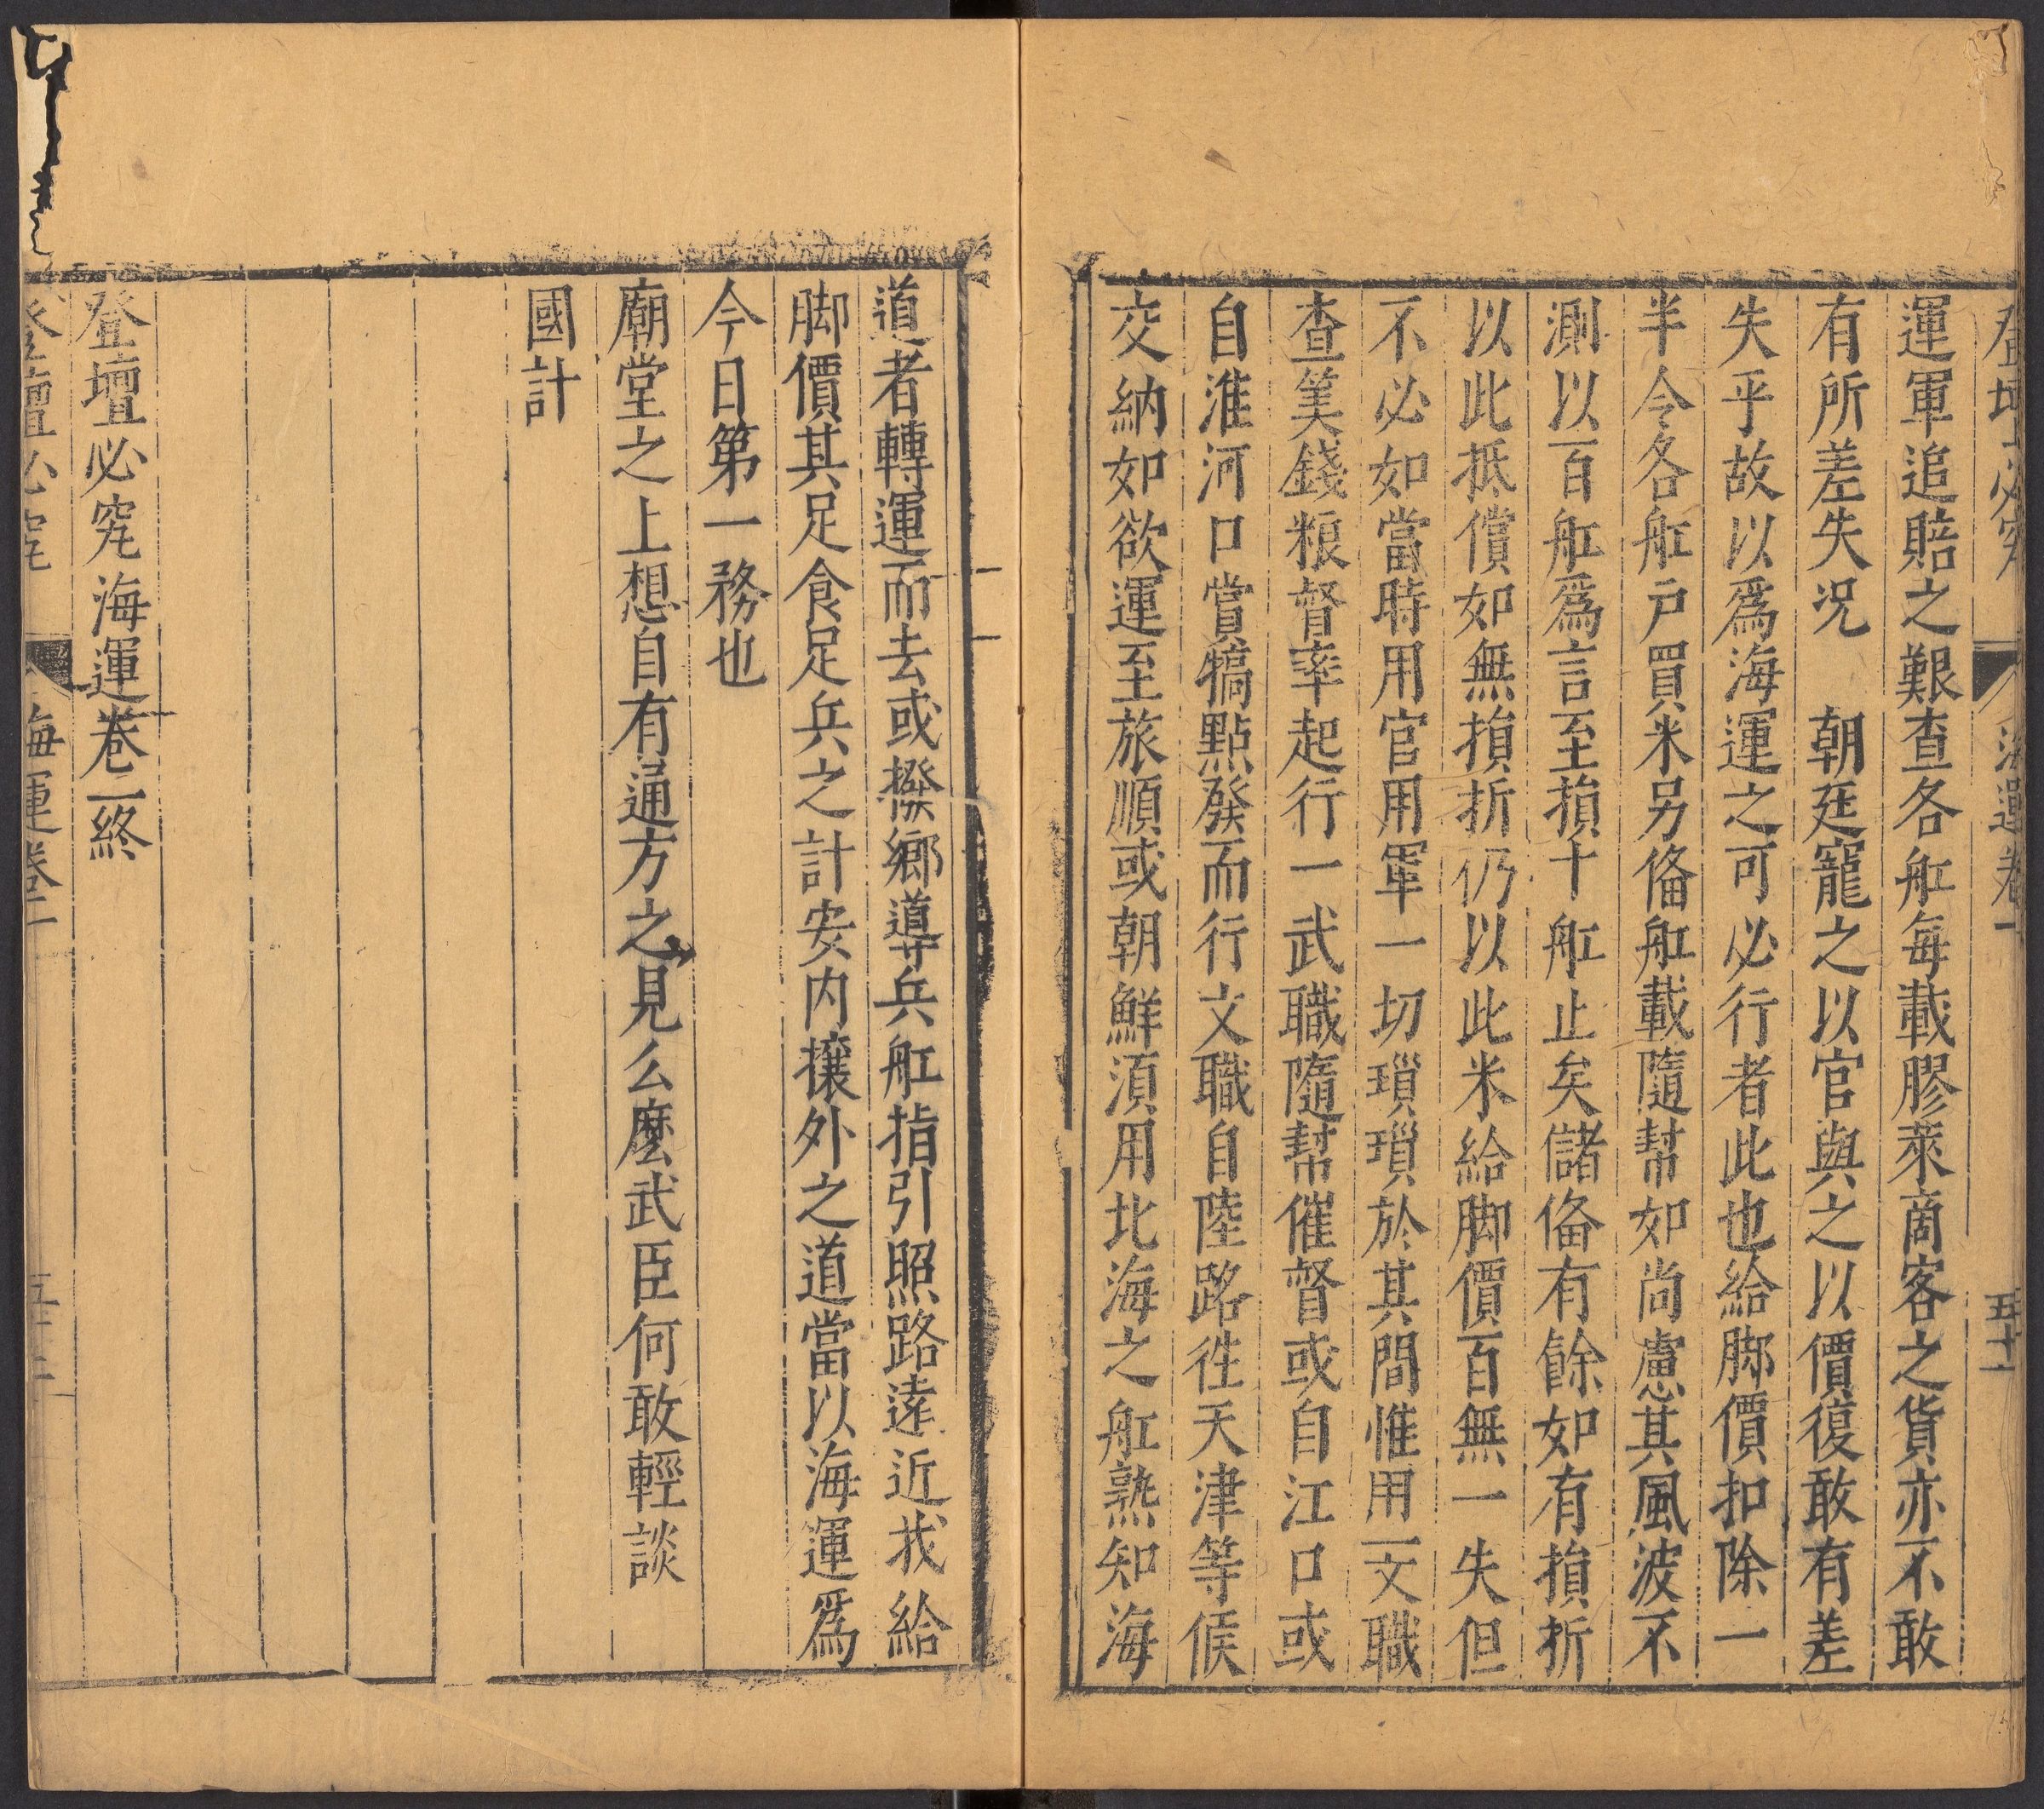 運軍追賠之艱查各舡每載膠萊商客之貨亦不敢
有所差失况　朝廷寵之以官與之以價復敢有差
失乎故以爲海運之可必行者此也給脚價扣除一
半令各舡戸買米另俻舡載隨幇如尚慮其風波不
測以百舡爲言至損十舡止矣儲俻有餘如有損折
以此抵償如無損折仍以此米給脚價百無一失但
不必如當時用官用軍一切瑣瑣於其間惟用一文職
查筭錢粮督率起行一武職隨幇催督或自江口或
自淮河口賞犒點發而行文職自陸路徃天津等候
交納如欲運至旅順或朝鮮湏用北海之舡熟知海
五十一
道者轉運而去或撥鄉導兵舡指引照路遠近找給
脚價其足食足兵之計安内攘外之道當以海運爲
今日第一務也
廟堂之上想自有通方之見么麽武臣何敢輕談
國計
登壇必究海運卷二終
登壇必究　海運卷二